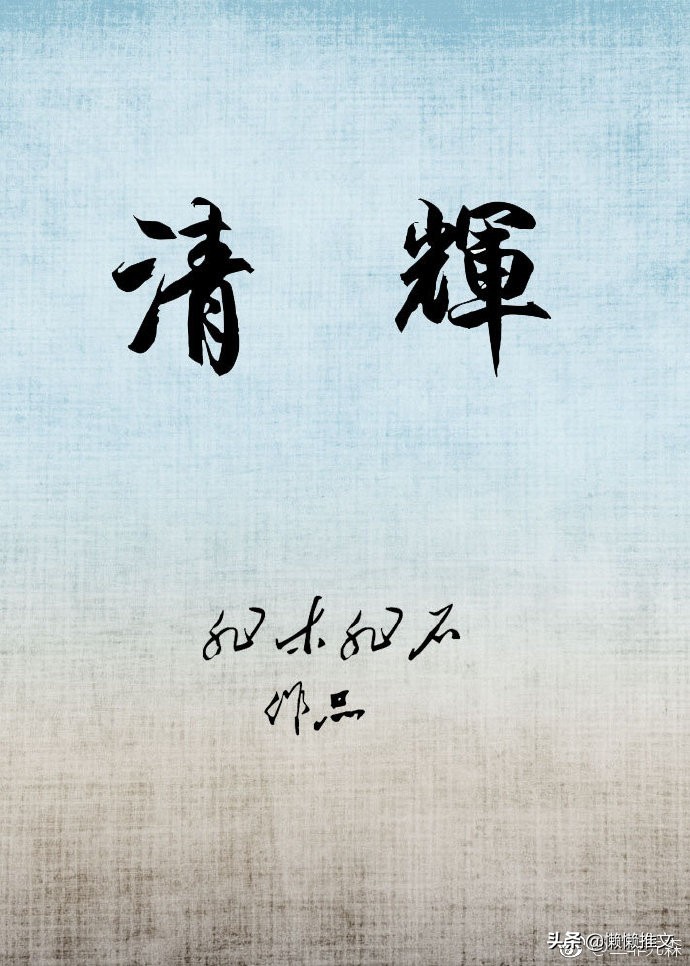 清輝
非木非石
作品
头条 @懒懒推文